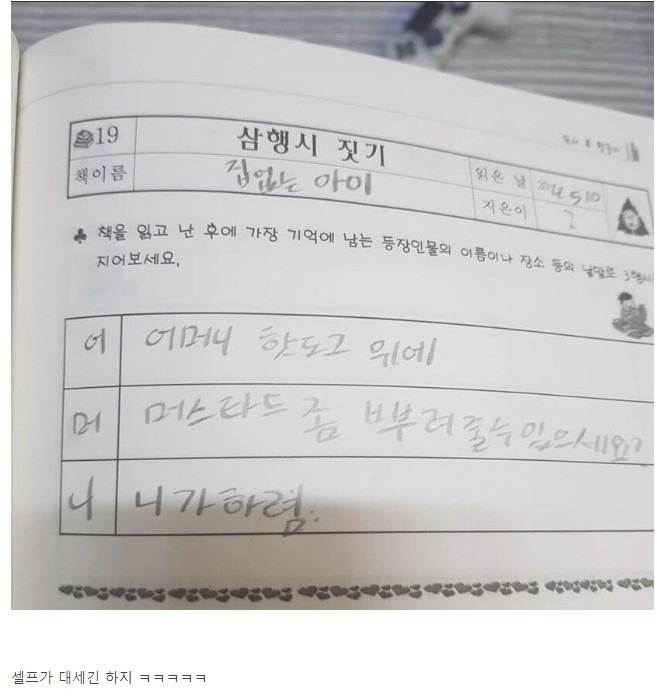 19
삼행시 짓기
책이름
집없는 아이
읽은 날
510
지은이
?
♣ 책을 읽고 난 후에 가장 기억에 남는 등장인물의 이름이나 장소 등의 낱말로 3행시
지어보세요.
어
어머니 핫도그 위에
머
머스타드 좀 뿌려줄수 있으세요?
니
니가하렴.
셀프가 대세긴 하지 ㅋㅋㅋㅋㅋ